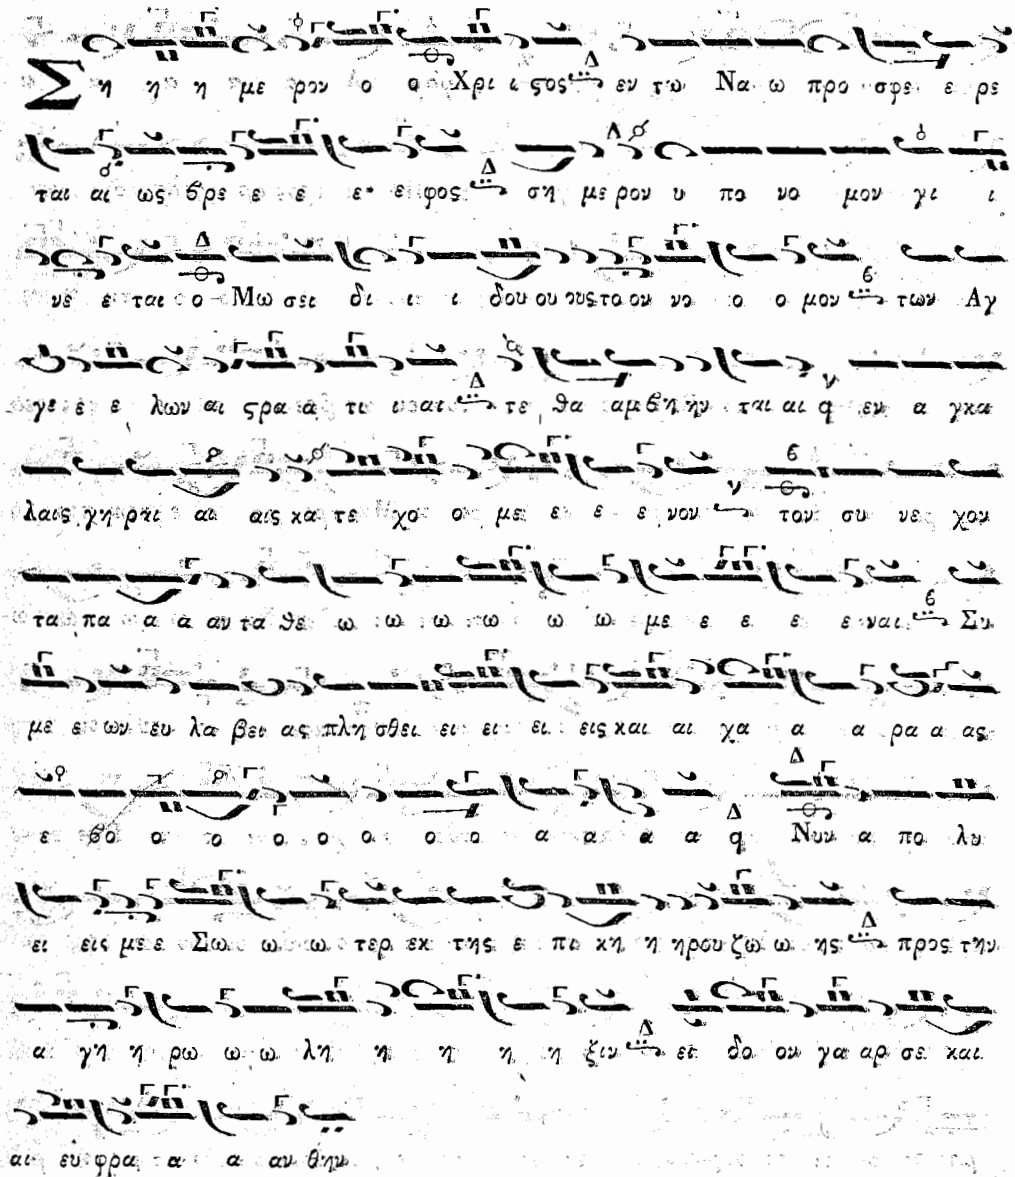 Ση η η με ρον ο ο Χρι ι ϛος Δ εν τω Να ω προ σφε ε ρε
ται αι ως βρε ε ε ε ε φος Δ ση με ρον υ πο νο μον γι ι
νε ε ται ο Μω σει δι ι ι δου ου ους το ον νο ο ο μον ϐ των Αγ
γε ε ε λων αι ϛρα α τι ι αι Δ τε θα αμ βη ην ται αι q εν α γκα
λαις γη ραι αι αις κα τε χο ο με ε ε ε νον ν τον συ νε χον
τα πα α α αν τα θε ω ω ω ω ω ω με ε ε ε ε ναι ϐ Συ
με ε ων ευ λα βει ας πλη σθει ει ει ει εις και αι χα α α ρα α ας
ε βο ο ο ο ο ο ο ο α α α α q Νυν α πο λυ
ει εις με ε Σω ω ω τερ εκ της ε πι κη η ηρου ζω ω ης Δ προς την
α γη η ρω ω ω λη η η η η ξιν Δ ει δο ον γα αρ σε και
αι ευ φρα α α αν θην